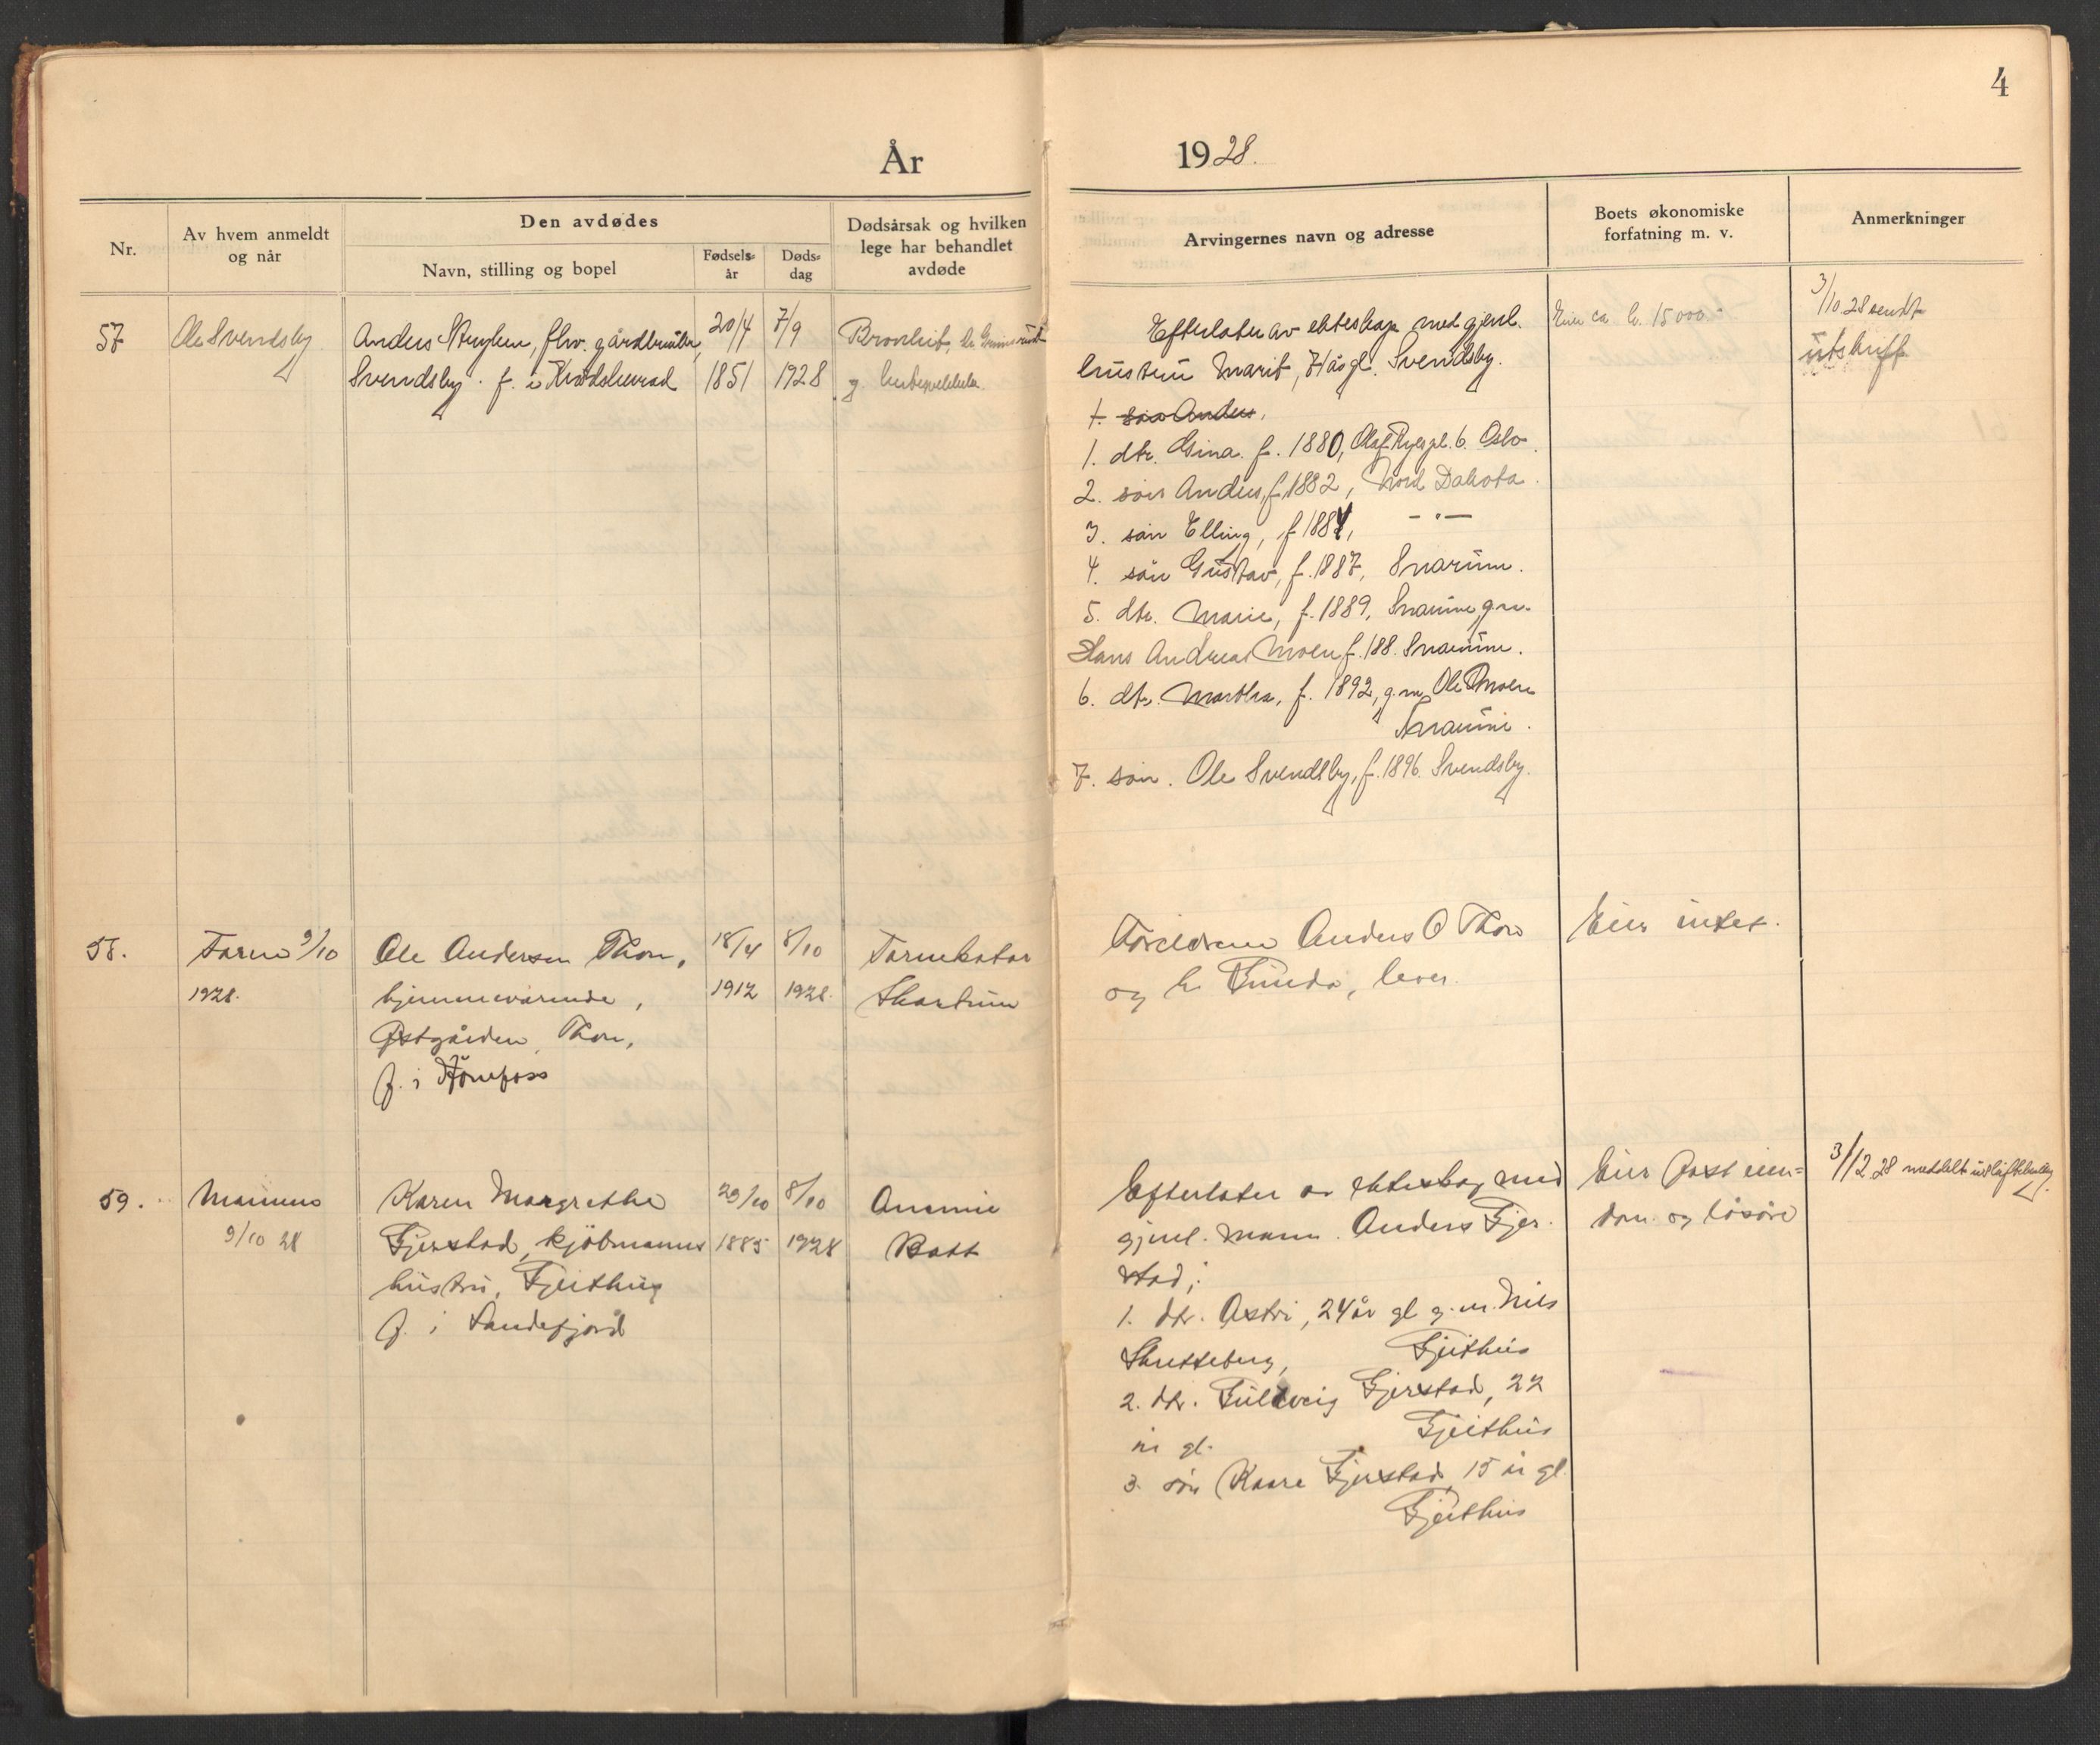 4
År 1928.
Nr.
Av hvem anmeldt
og når
Den avdødes
Navn, stilling og bopel
Fødsels-
år
Døds-
dag
Dødsårsak og hvilken
lege har behandlet
avdøde
Arvingernes navn og adresse
Boets økonomiske
forfatning m. v.
Anmerkninger
57
Ole Svendsby
Anders Strygken, fhv. gårdbruker,
Svendsby. f. i Krødsherad
20/4
1851
7/9
1928
Bronkit,
og
Efterlater av ekteskap med gjenl.
hustru Marit, år gl. Svendsby.
1. søn Anders,
1. dtr. Gina. f. 1880, Olaf Ryes pl. 6. Oslo.
2. søn Anders, f. 1882, Nord Dakota.
3. søn Elling, f 1884, — " —
4. søn Gustav, f. 1887, Snarum.
5. dtr. Marie, f. 1889, Snarum, g.m.
Hans Andreas Moen f. 188. Snarum.
6. dtr. Martha, f. 1892, g.m. Ole Moen
Snarum.
7. søn. Ole Svendsby, f. 1896. Svendsby.
Eier ca kr. 15 000.-
3/10 28 sendt
utskrift
58.
Faren 9/10
1928.
Ole Andersen Thon,
hjemmeværende,
Østgården Thon,
f. i Hönefoss
18/4
1912
8/10
1928.
Tarmkatar
Skartum
Foreldrene Anders O Thon
og h. Gunda, lever.
Eier intet.
59.
Mannen
9/10 28
Karen Margrethe
Gjerstad, kjöbmanns
hustru, Gjeithus
f. i Sandefjord
29/10
1885
8/10
1928
Anemie
Bott
Efterlater av ekteskap med
gjenl. mann. Anders Gjer-
stad;
1. dtr. Astri, 24 år gl g.m. Nils
Skretteberg, Gjeithus
2. dtr. Gudveig Gjerstad, 22
år gl. Gjeithus
3. søn Kaare Gjerstad, 15 år gl.
Gjeithus
Eier fast eien=
dom og løsøre
3/12 28 meddelt uskiftebevilg.